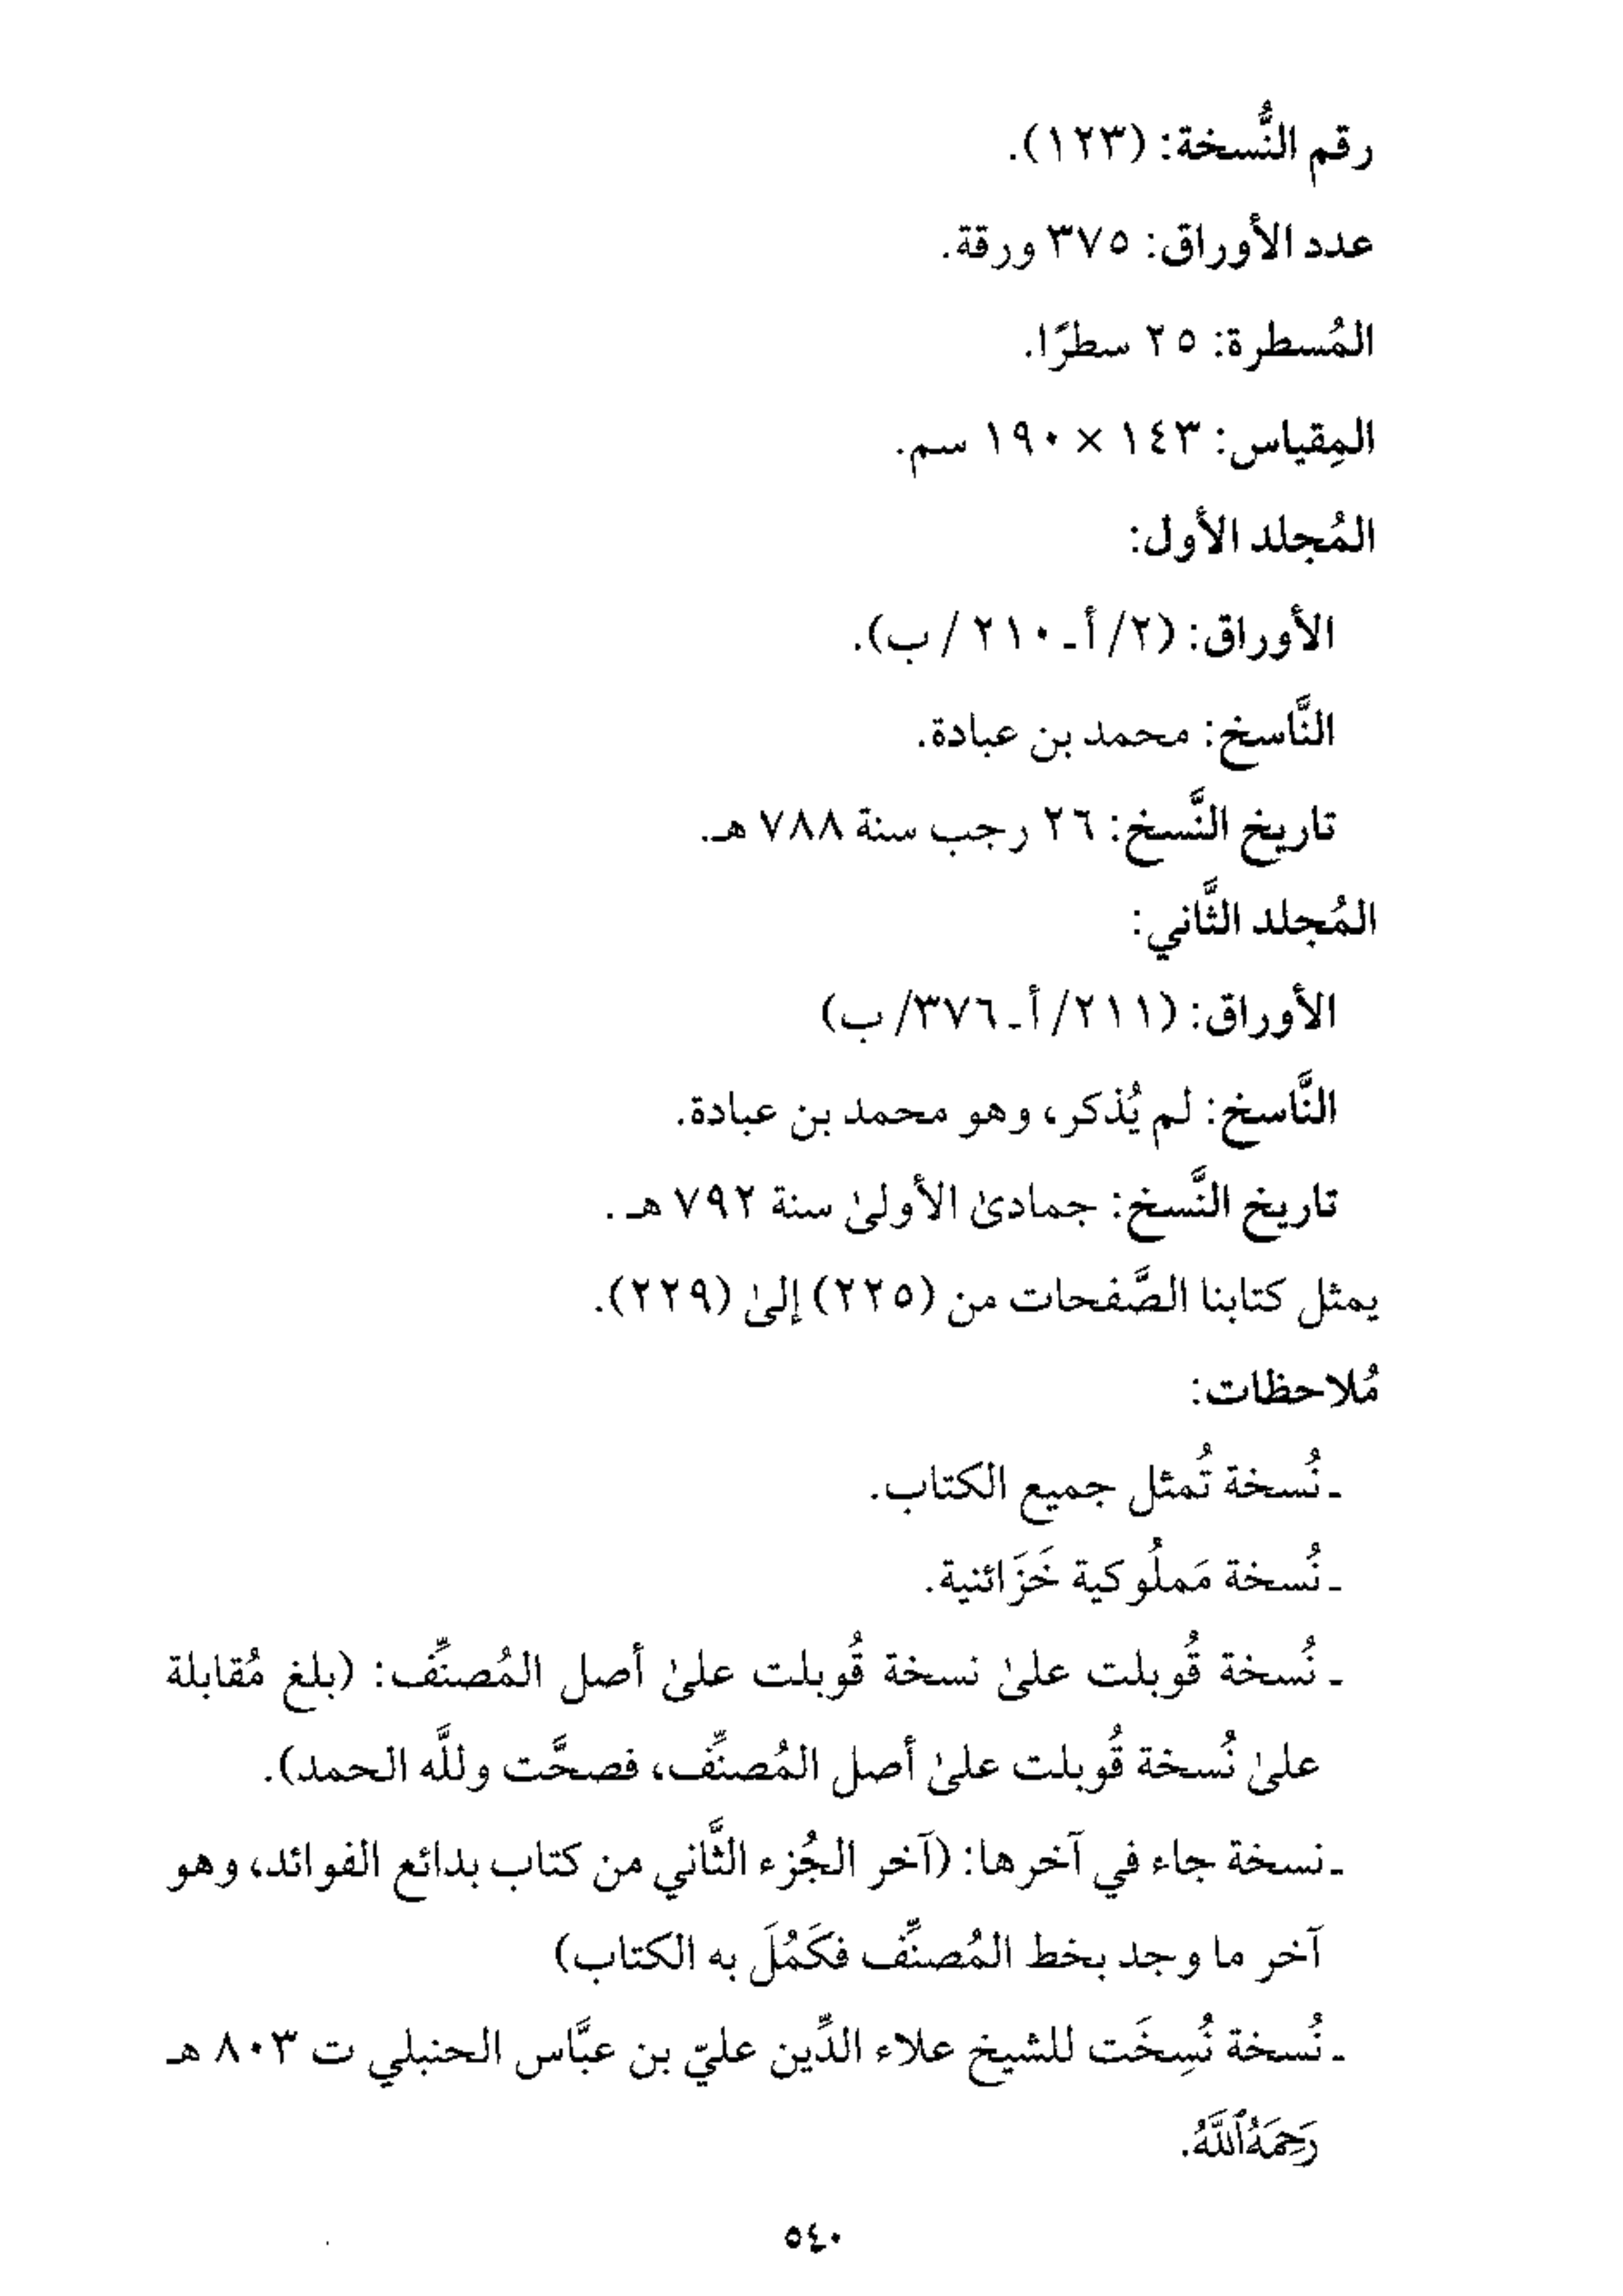 رقم النُّسخة: (١٢٣).
عدد الأوراق: ٣٧٥ ورقة.
المُسطرة: ٢٥ سطرًا.
المِقياس: ١٤٣ × ١٩٠ سم.
المُجلد الأول:
الأوراق: (٢/ أ ـ ٢١٠ / ب).
النَّاسخ: محمد بن عبادة.
تاريخ النَّسخ: ٢٦ رجب سنة ٧٨٨ هـ.
المُجلد الثَّاني:
الأوراق: (٢١١/ أ ـ ٣٧٦/ ب)
النَّاسخ: لم يُذكر، وهو محمد بن عبادة.
تاريخ النَّسخ: جمادىٰ الأولىٰ سنة ٧٩٢ هـ .
يمثل كتابنا الصَّفحات من (٢٢٥) إلىٰ (٢٢٩).
مُلاحظات:
ـ نُسخة تُمثل جميع الكتاب.
ـ نُسخة مَملُوكية خَزَائنية.
ـ نُسخة قُوبلت علىٰ نسخة قُوبلت علىٰ أصل المُصنِّف: (بلغ مُقابلة
علىٰ نُسخة قُوبلت علىٰ أصل المُصنِّف، فصحَّت وللَّه الحمد).
ـ نسخة جاء في آخرها: (آخر الجُزء الثَّاني من كتاب بدائع الفوائد، وهو
آخر ما وجد بخط المُصنِّف فكَمُلَ به الكتاب)
ـ نُسخة نُسِخَت للشيخ علاء الدِّين عليّ بن عبَّاس الحنبلي ت ٨٠٣ هـ
رَحِمَهُ ٱللَّهُ.
٥٤٠